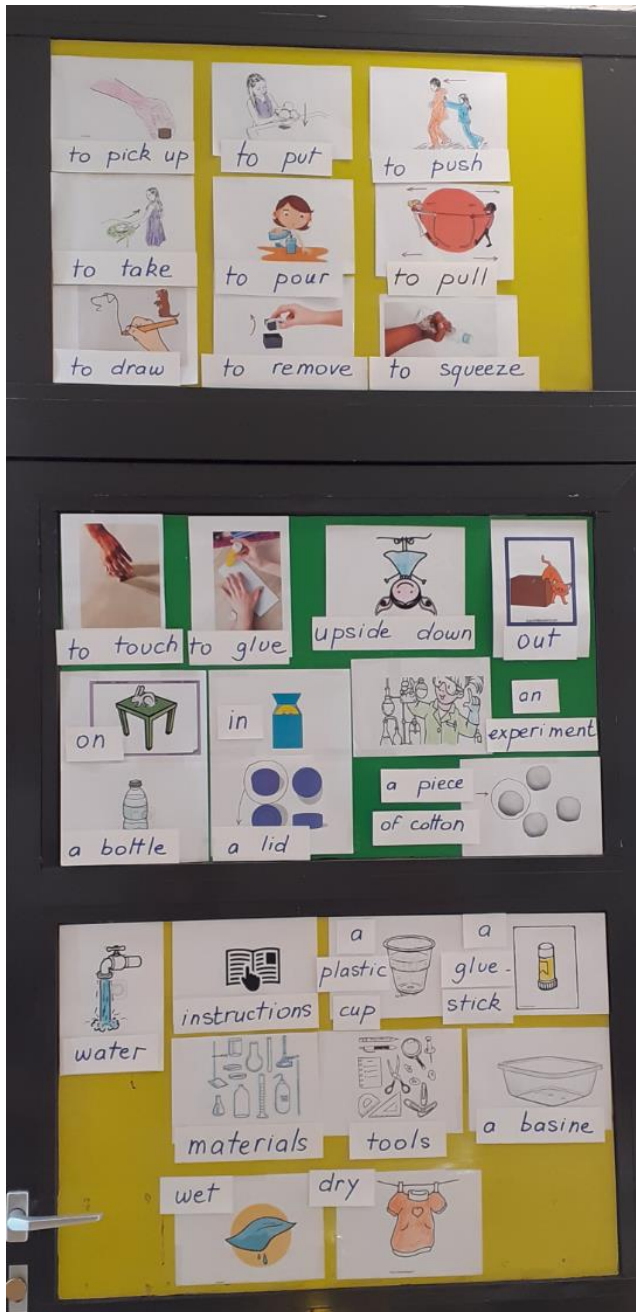 to pick up
to put
to push
to take
to pour
to pull
to draw
to remove
to squeeze
to touch
to glue
upside down
out
on
in
an
experiment
a bottle
a lid
a piece
of cotton
water
instructions
a
plastic
cup
a
glue-
stick
materials
tools
a basine
wet
dry